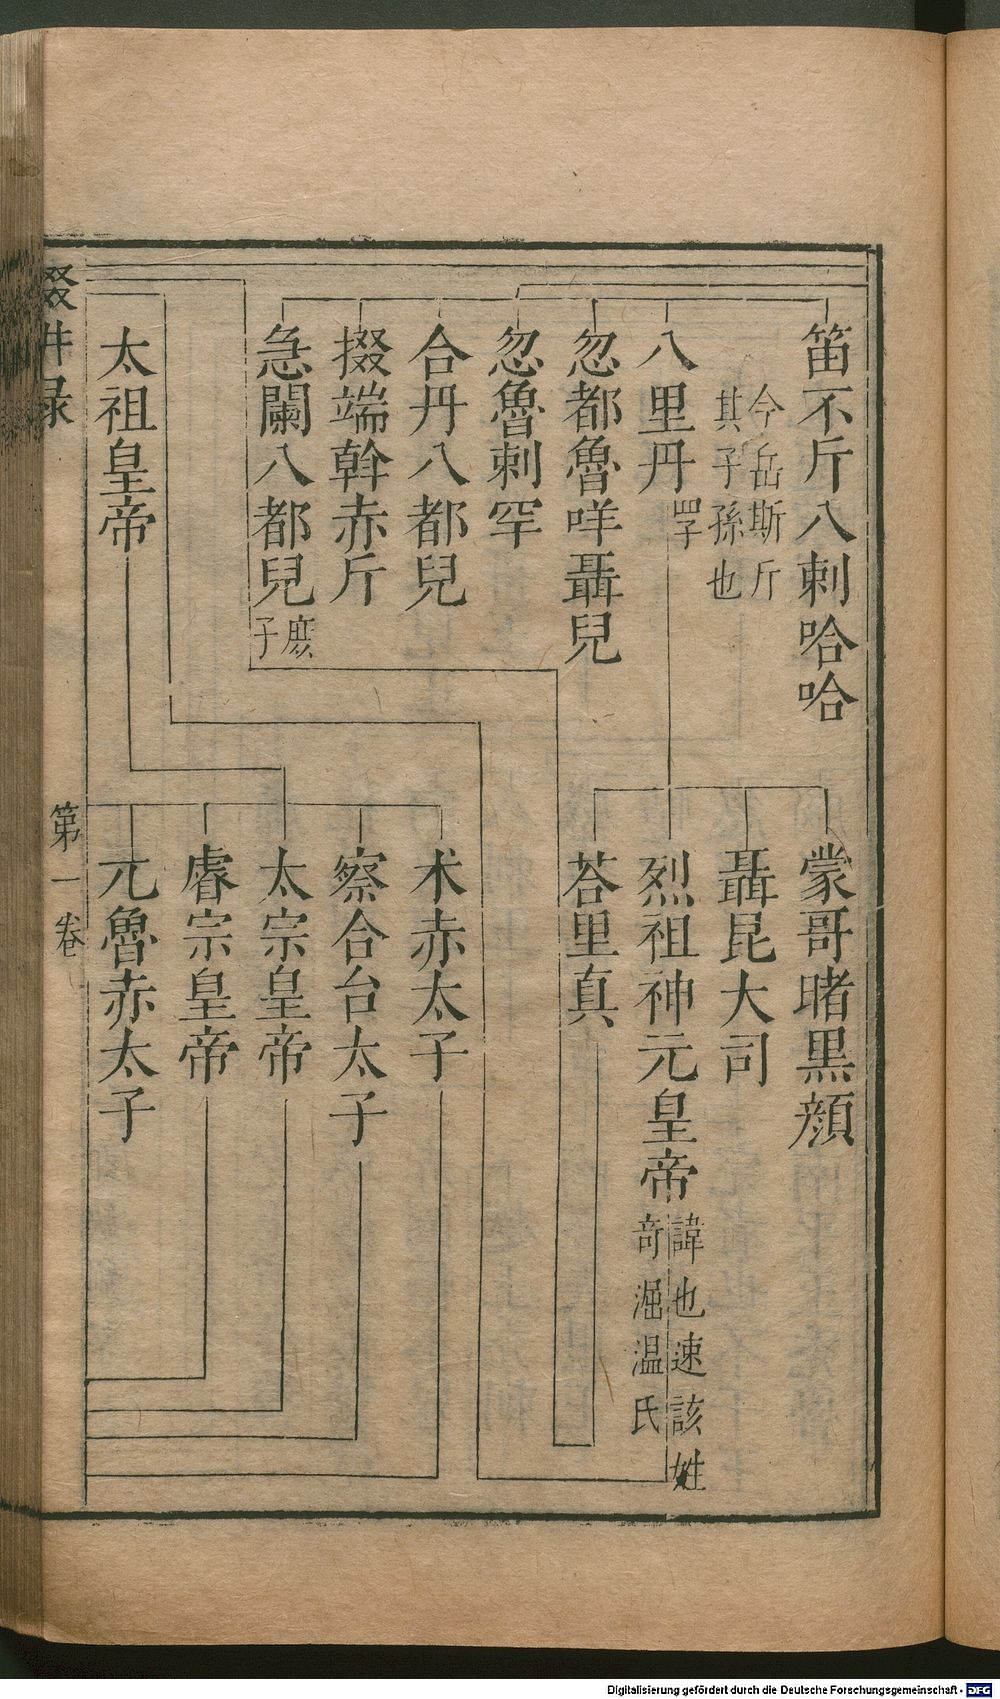 笛不斤八剌哈哈
今岳斯斤
其子孫也
八里丹
罕
忽都魯咩聶兒
忽魯剌罕
合丹八都兒
掇端斡赤斤
急闌八都兒
庶
子
太祖皇帝
蒙哥睹黑顔
聶昆大司
烈祖神元皇帝
諱也速該姓
奇渥温氏
荅里真
术赤太子
察合台太子
太宗皇帝
睿宗皇帝
兀魯赤太子
輟耕録
第一卷
Digitalisierung gefördert durch die Deutsche Forschungsgemeinschaft - DFG